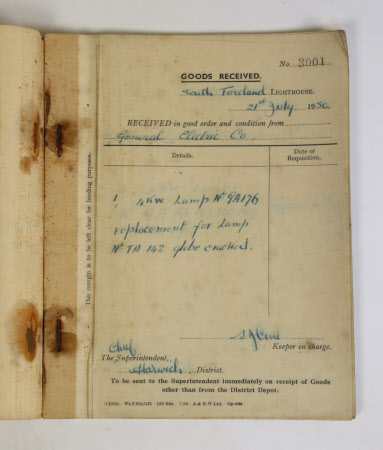 No. 3001
GOODS RECEIVED.
South Foreland LIGHTHOUSE.
21st July 1950
RECEIVED in good order and condition from
General Electric Co.
Details.
Date of Requisition.
1, 4KW Lamp No 9A176
replacement for lamp
No TA 142 globe cracked.
Keeper in charge.
Chief
The Superintendent,
Harwich District.
To be sent to the Superintendent immediately on receipt of Goods
other than from the District Depot.
This margin is to be left clear for binding purposes.